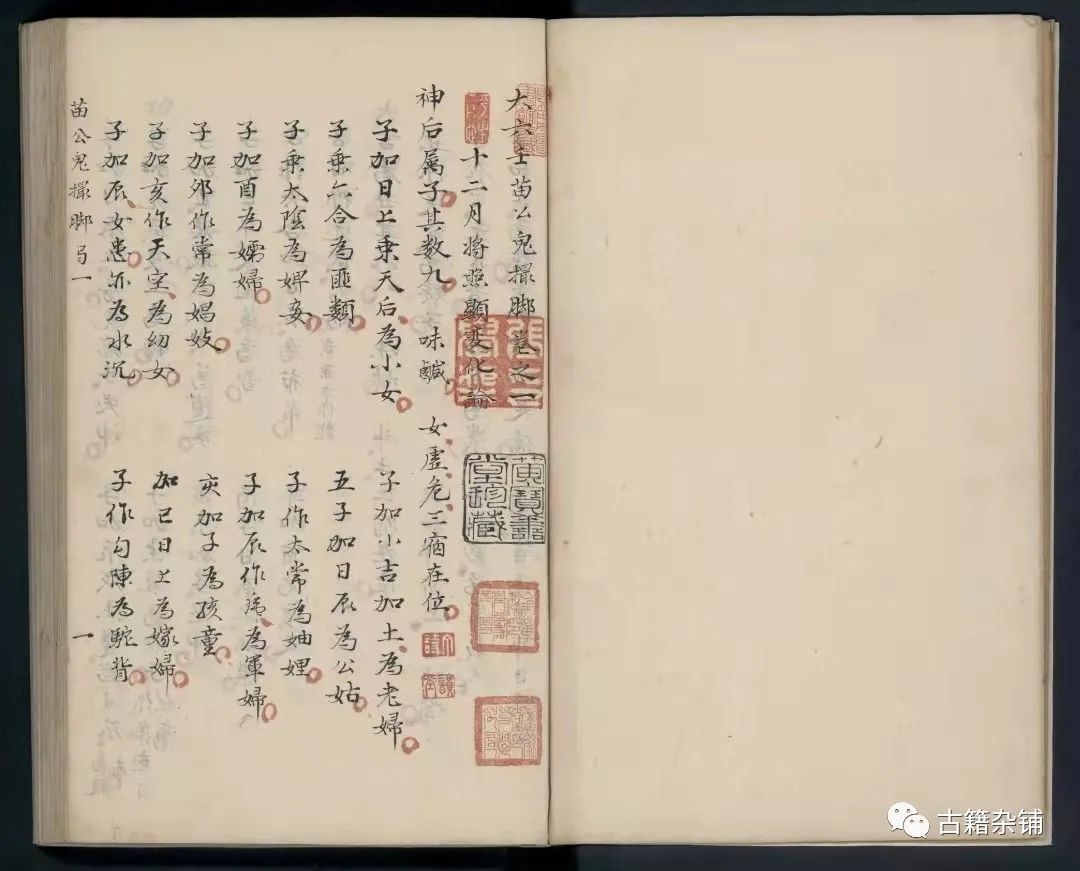 大六壬苗公鬼撮脚卷之一
十二月将照顯變化論
神后属子其数九 味鹹 女虚危三宿在位
子加日上乗天后為小女 子加小吉加土為老婦
子乗六合為匪類 五子加日辰為公姑
子乗太陰為婢妾 子作太常為妯娌
子加酉為孀婦 子加辰作虎為軍婦
子加卯作常為娼妓 亥加子為孩童
子加亥作天空為幼女 加已日上為嫁婦
子加辰女患亦為水沉 子作勾陳為駝背
苗公鬼撮脚 一
一
黄寶善堂珍藏
古籍杂铺